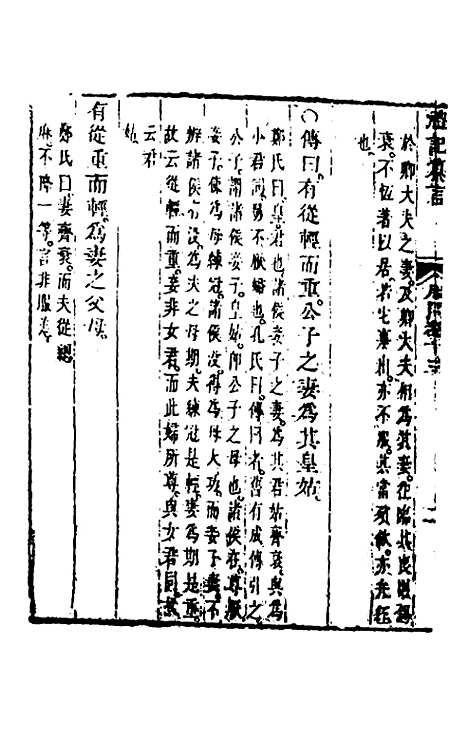 禮記集言
於卿大夫之妻及卿大夫相為其妻往臨其喪則錫
衰不恆著以居若它事則亦不服其當殯斂亦弁絰
也
〇傳曰有從輕而重公子之妻為其皇姑
鄭氏曰皇君也諸侯妾子之妻為其君姑齊衰與為
小君同舅不厭婦也孔氏曰傳曰者舊有成傳引之
公子謂諸侯妾子皇姑即公子之母也諸侯在尊厭
妾子使為母練冠諸侯沒得為母大功而妾子妻不
辨諸侯存沒為夫之母期夫練冠是輕妻為期是重
故云從輕而重妾非女君而此婦所尊與女君同故
云君
姑
有從重而輕為妻之父母
鄭氏曰妻齊衰而夫從緦
麻不降一等言非服差